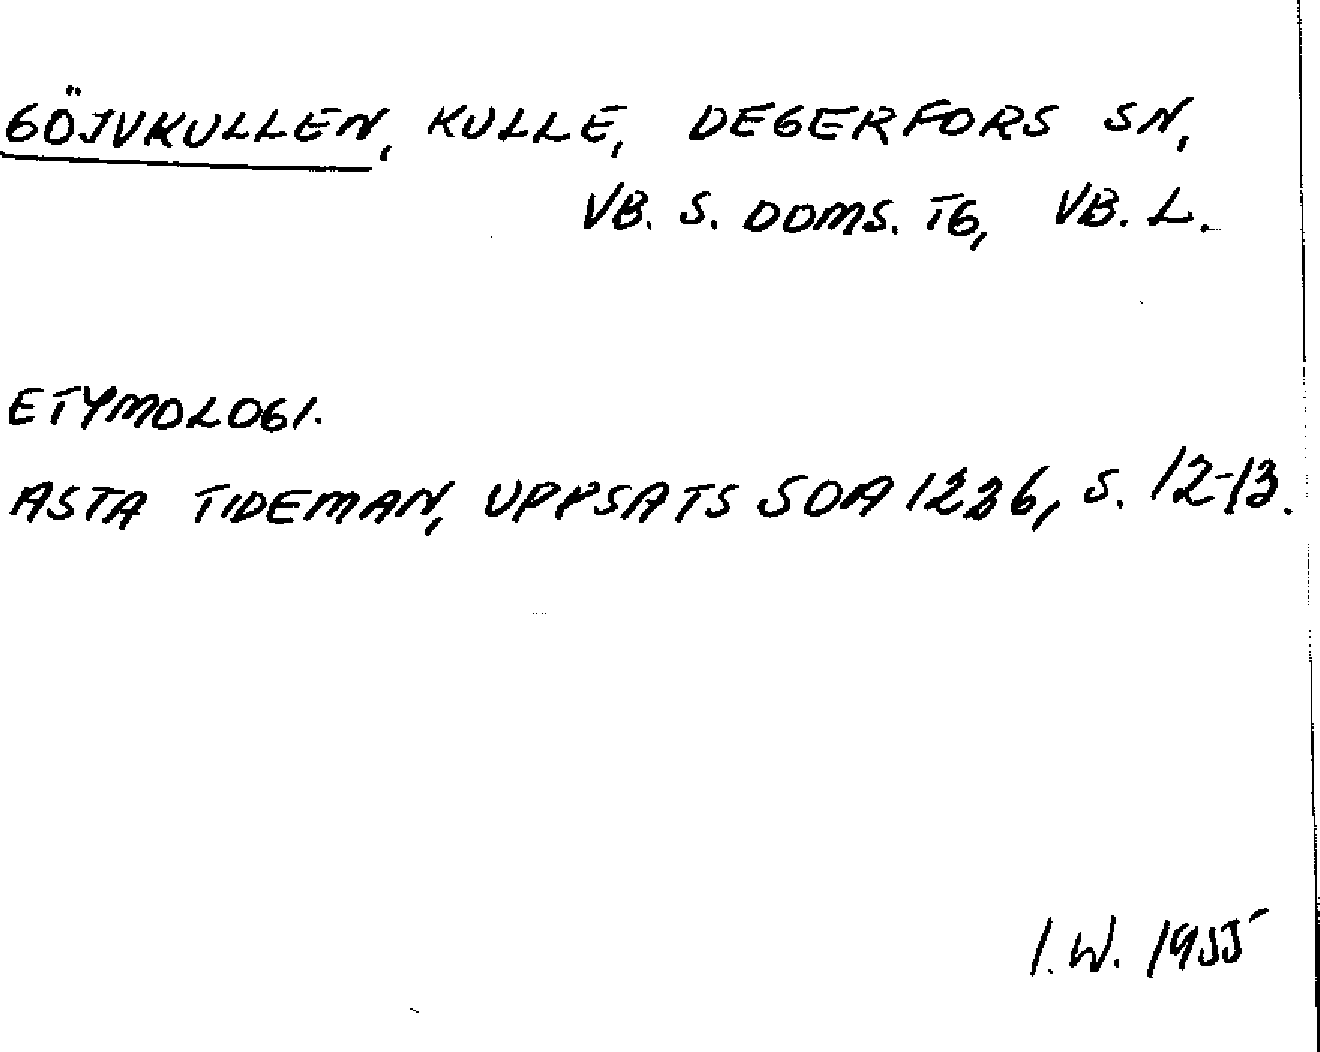 GÖJVKULLEN, KULLE, DEGERFORS SN,
VB. S. DOMS. TG, VB. L.
ETYMOLOGI.
ASTA TIDEMAN, UPPSATS SOA 1236, S. 12-13.
I. W. 1955